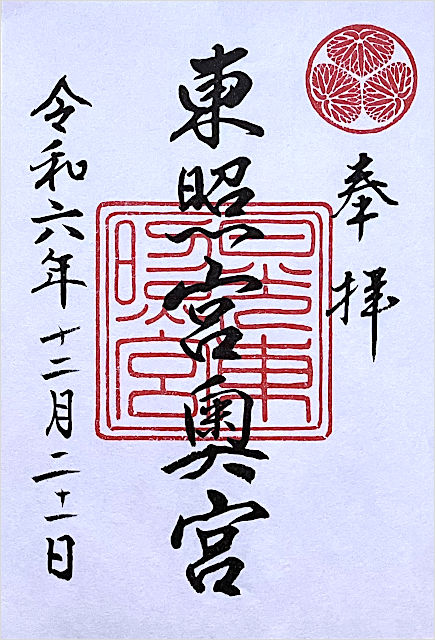 奉拝
東照宮奥宮
日光東照宮
令和六年十二月二十一日